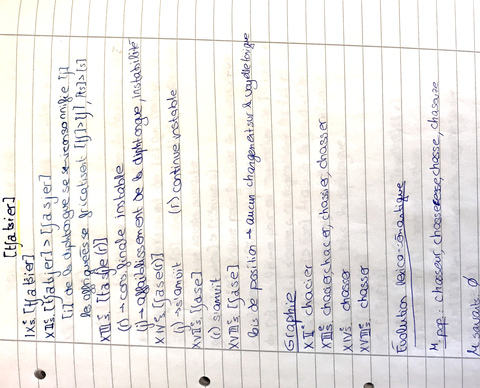 [tʃatsier]
IXᵉs. [tʃatsier]
XIIᵉs. [tʃatsjer] > [ʃasjer]
[i] de la diphtongue se consonnifie [j]
les affriquées se fricatisent [tʃ] > [ʃ], [ts] > [s]
XIIIᵉs. [ʃasje(r)]
(r) → cons. finale instable
(j) → affaiblissement de la diphtongue, instabilité
XIVᵉs. [ʃase(r)]
(j) → s'amuït (r) continue instable
XVIIᵉs. [ʃase]
(r) s'amuït
XVIIIᵉs. [ʃase]
Lois de position → aucun changement sur la voyelle tonique
Graphie
XIIᵉ chacier
XIIIᵉs chacier, chasier, chassier
XIVᵉs. chasser
XVIIIᵉs. chasser
Évolution lexico-sémantique
M. pop: chasseur, chasseresse, chasse
M. savants Ø